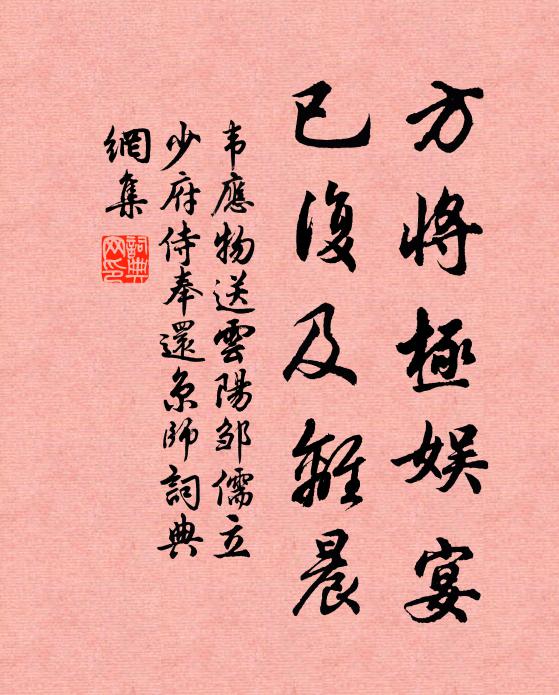 方将極娱宴
已復及離晨
韦應物送雲陽邹儒立
少府侍奉還京師詞典
網集
詞典
网印